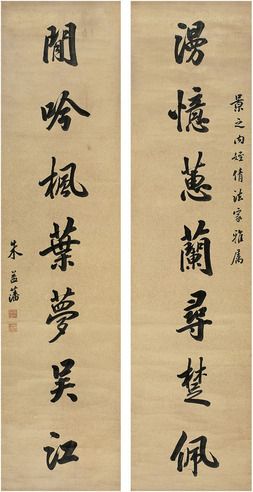 景之内姪倩法家雅属
漫憶蕙蘭尋楚佩
閒吟楓葉夢吴江
朱益藩